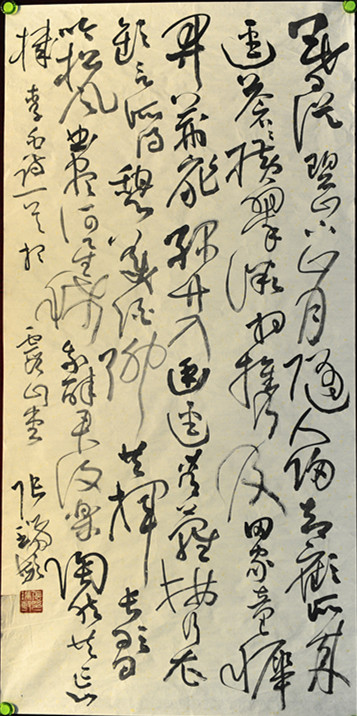 暮從碧山下山月隨人歸却顧所來
逕蒼蒼橫翠微相攜及田家童稚
開荊扉綠竹入幽逕青蘿拂行衣
歡言所得憩美酒聊共揮長歌
吟松風曲盡河星稀我醉君復樂陶然共忘
機 李白詩一首於 山堂 張瑞